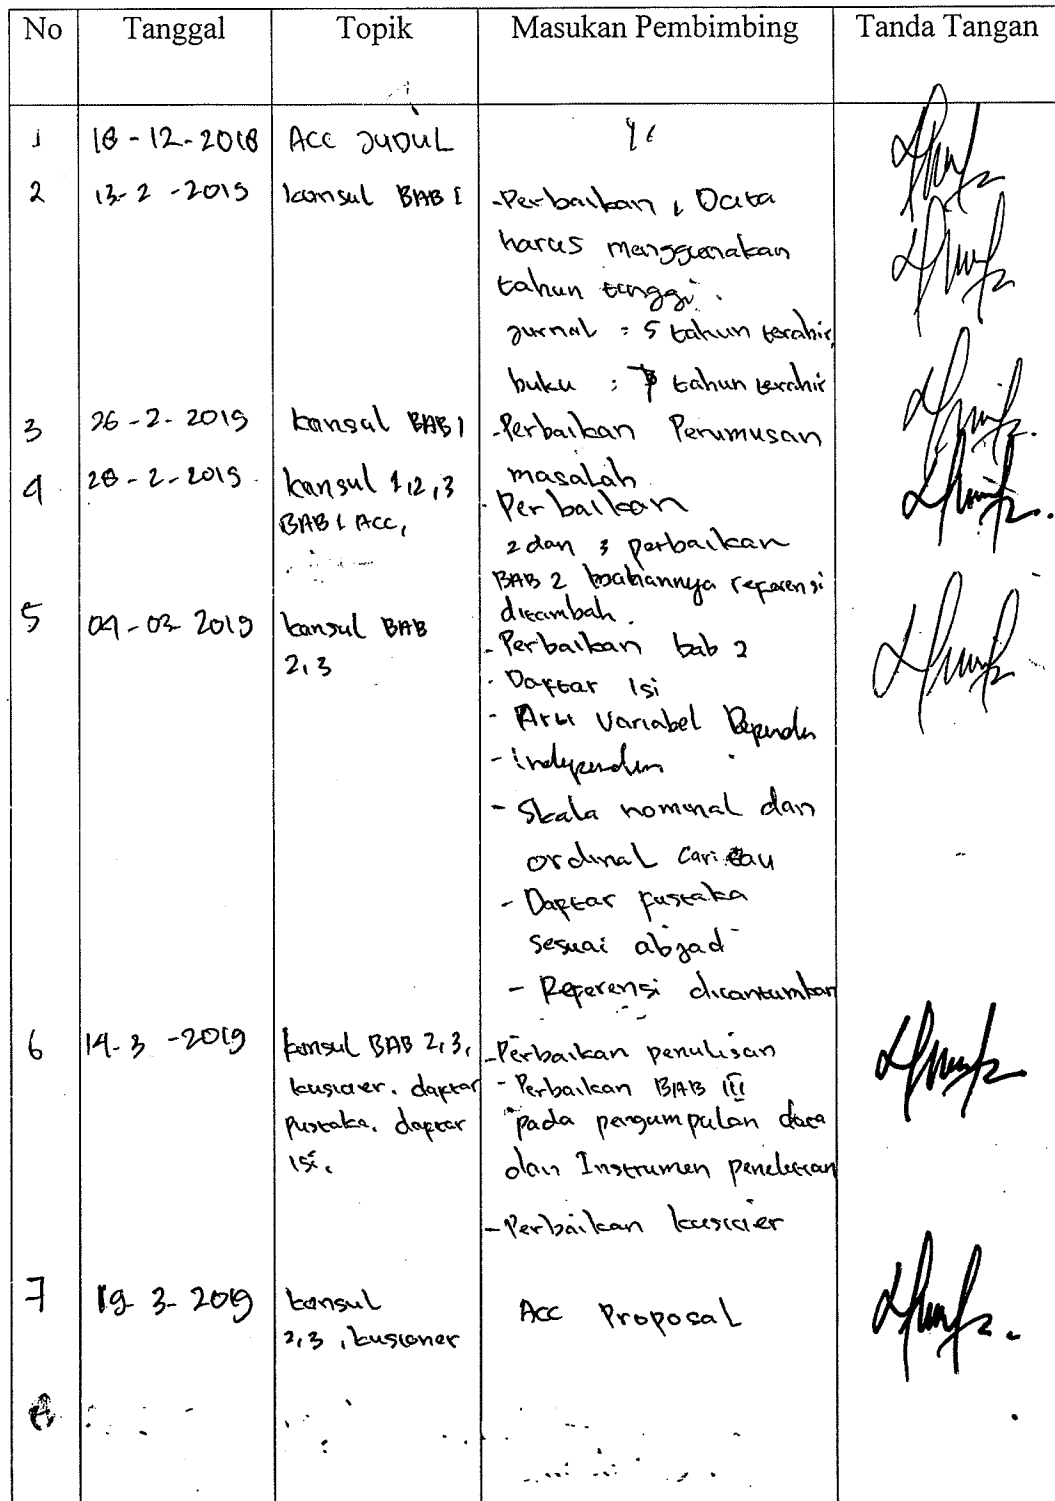 No Tanggal Topik Masukan Pembimbing Tanda Tangan
1 18-12-2018 ACC JUDUL
2 13-2-2019 konsul BAB I -Perbaikan, Data
harus menggunakan
tahun tinggi.
Jurnal = 5 tahun terahir,
buku : tahun terahir
3 26-2-2019 konsul BAB 1 -Perbaikan Perumusan
masalah
4 28-2-2019 konsul 1,2,3 -Perbaikan
BAB I ACC, 2 dan 3 perbaikan
BAB 2 referensi
ditambah.
5 04-03-2019 konsul BAB -Perbaikan bab 2
2,3 - Daftar isi
- Arti Variabel Dependen
- independen
- Skala nominal dan
ordinal cari tau
- Daftar pustaka
sesuai abjad
- Referensi dicantumkan
6 14-3-2019 konsul BAB 2,3, -Perbaikan penulisan
kusioer, daftar - Perbaikan BAB III
pustaka, daftar pada pengumpulan data
isi, dan Instrumen penelitian
-Perbaikan kusioer
7 19-3-2019 konsul ACC Proposal
2,3, kusioner